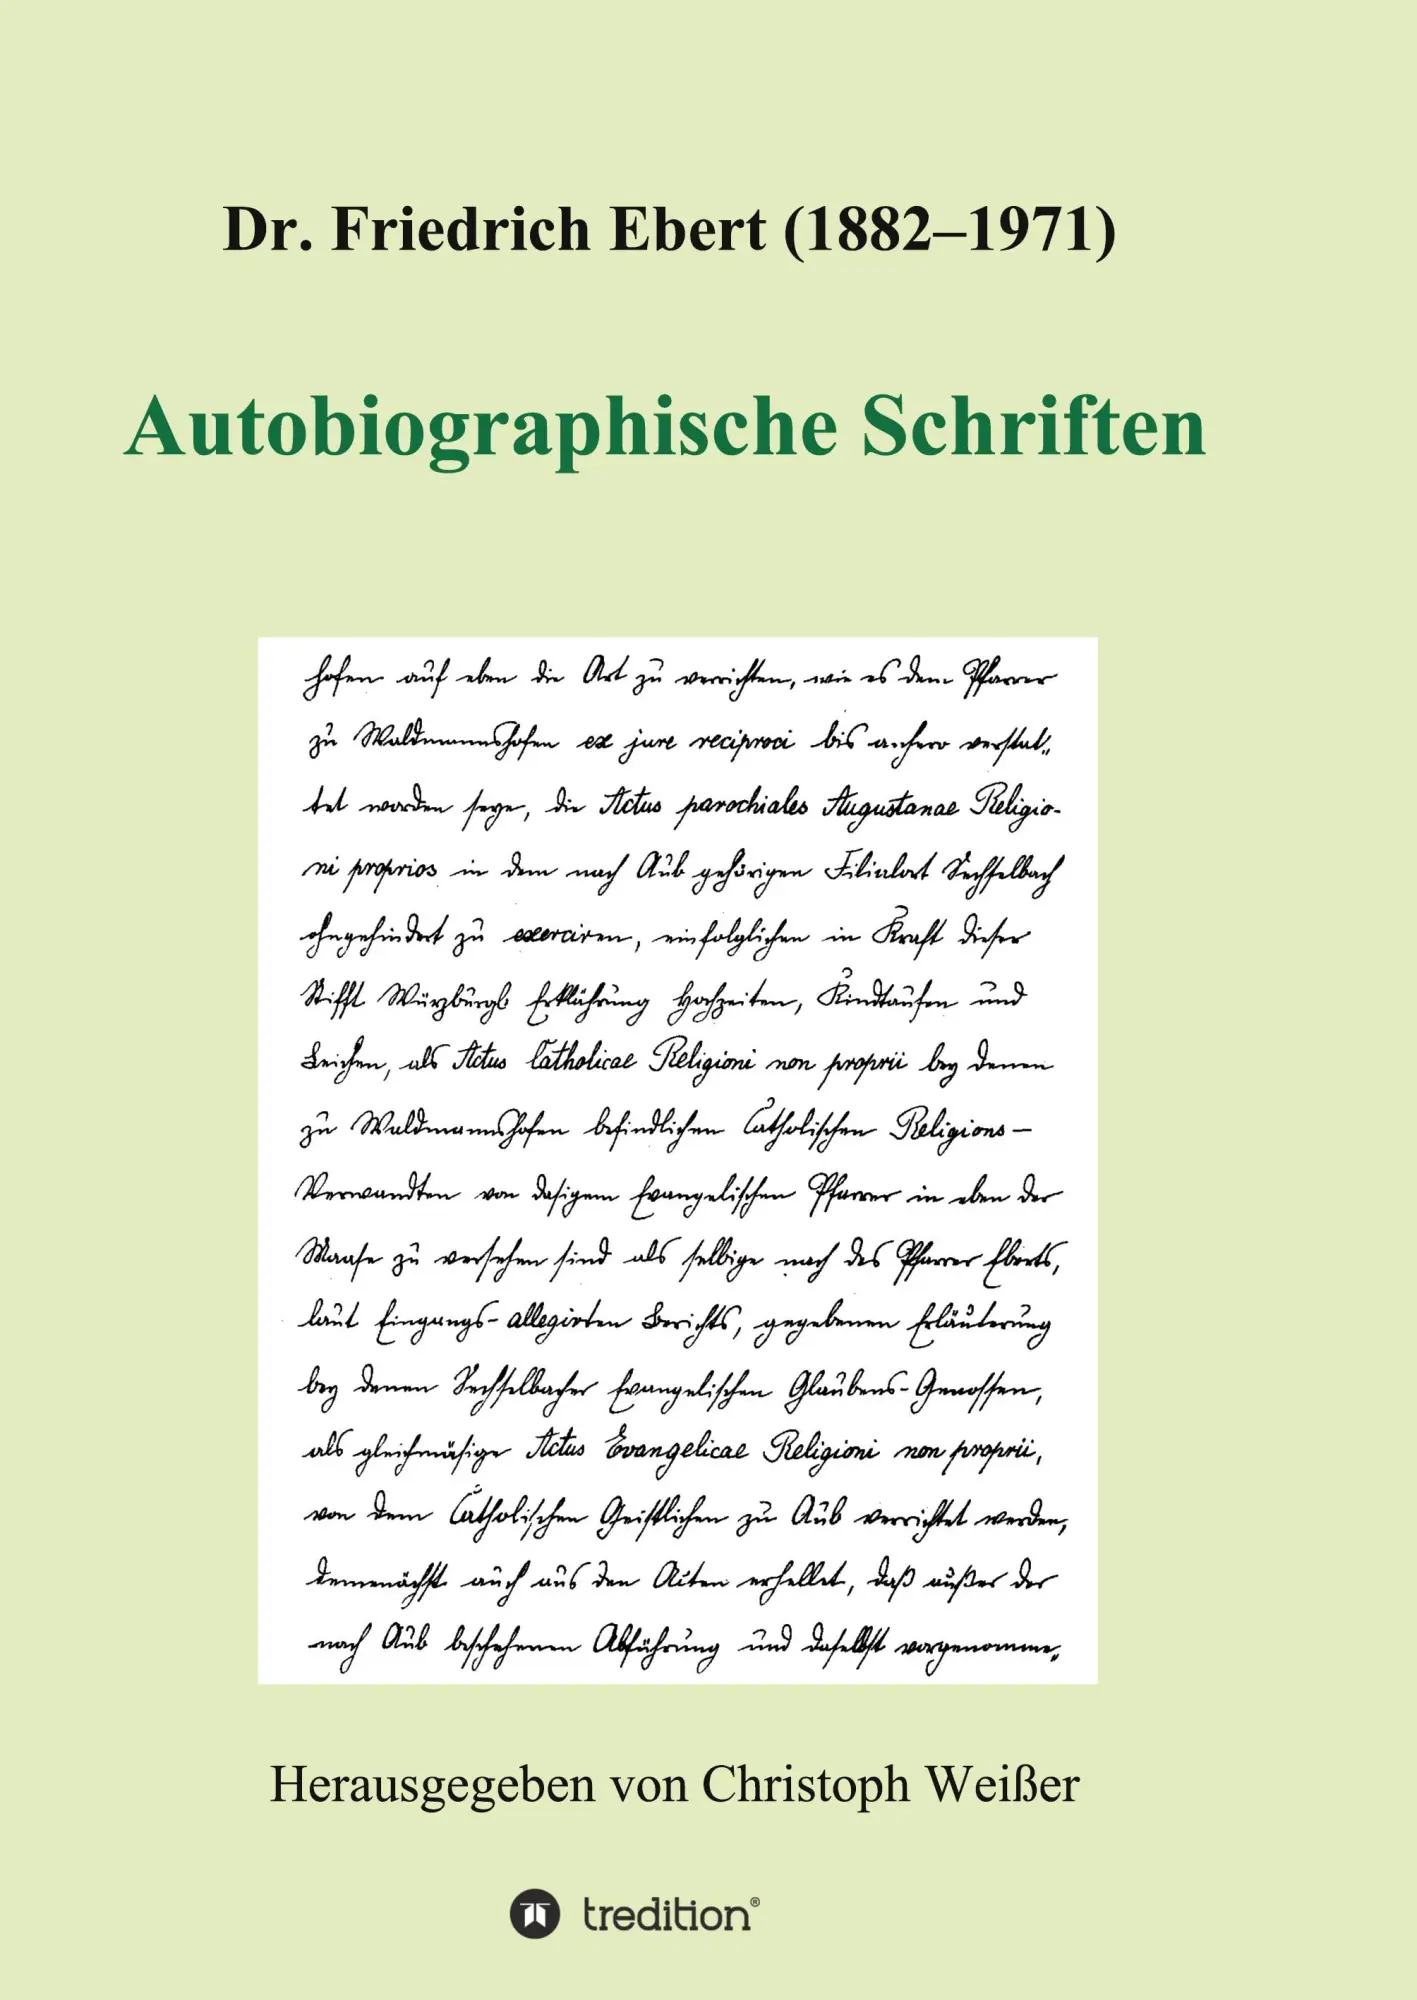 Dr. Friedrich Ebert (1882–1971)
Autobiographische Schriften
hofen auf eben die Art zu verrichten, wie es dem Pfarrer
zu Waldmannshofen ex jure reciproci bis anhero verstat„
tet worden seye, die Actus parochiales Augustanae Religio-
ni proprios in dem nach Aub gehörigen Filialort Sechselbach
ohngehindert zu exerciren, einfolglichen in Kraft dieser
Stifft Würzburgl. Erklährung Hochzeiten, Kindtaufen und
Leichen, als Actus Catholicae Religioni non proprii bey denen
zu Waldmannshofen befindlichen Catholischen Religions-
Verwandten von dasigem Evangelischen Pfarrer in eben der
Maase zu versehen sind als selbige nach des Pfarrer Eberts,
laut Eingangs-allegirten Berichts, gegebenen Erläuterung
bey denen Sechselbacher Evangelischen Glaubens-Genossen,
als gleichmäsige Actus Evangelicae Religioni non proprii,
von dem Catholischen Geistlichen zu Aub verrichtet werden,
demenächst auch aus den Acten erhellet, daß außer der
nach Aub beschehenen Abführung und daselbst vorgenomme„
Herausgegeben von Christoph Weißer
tredition®